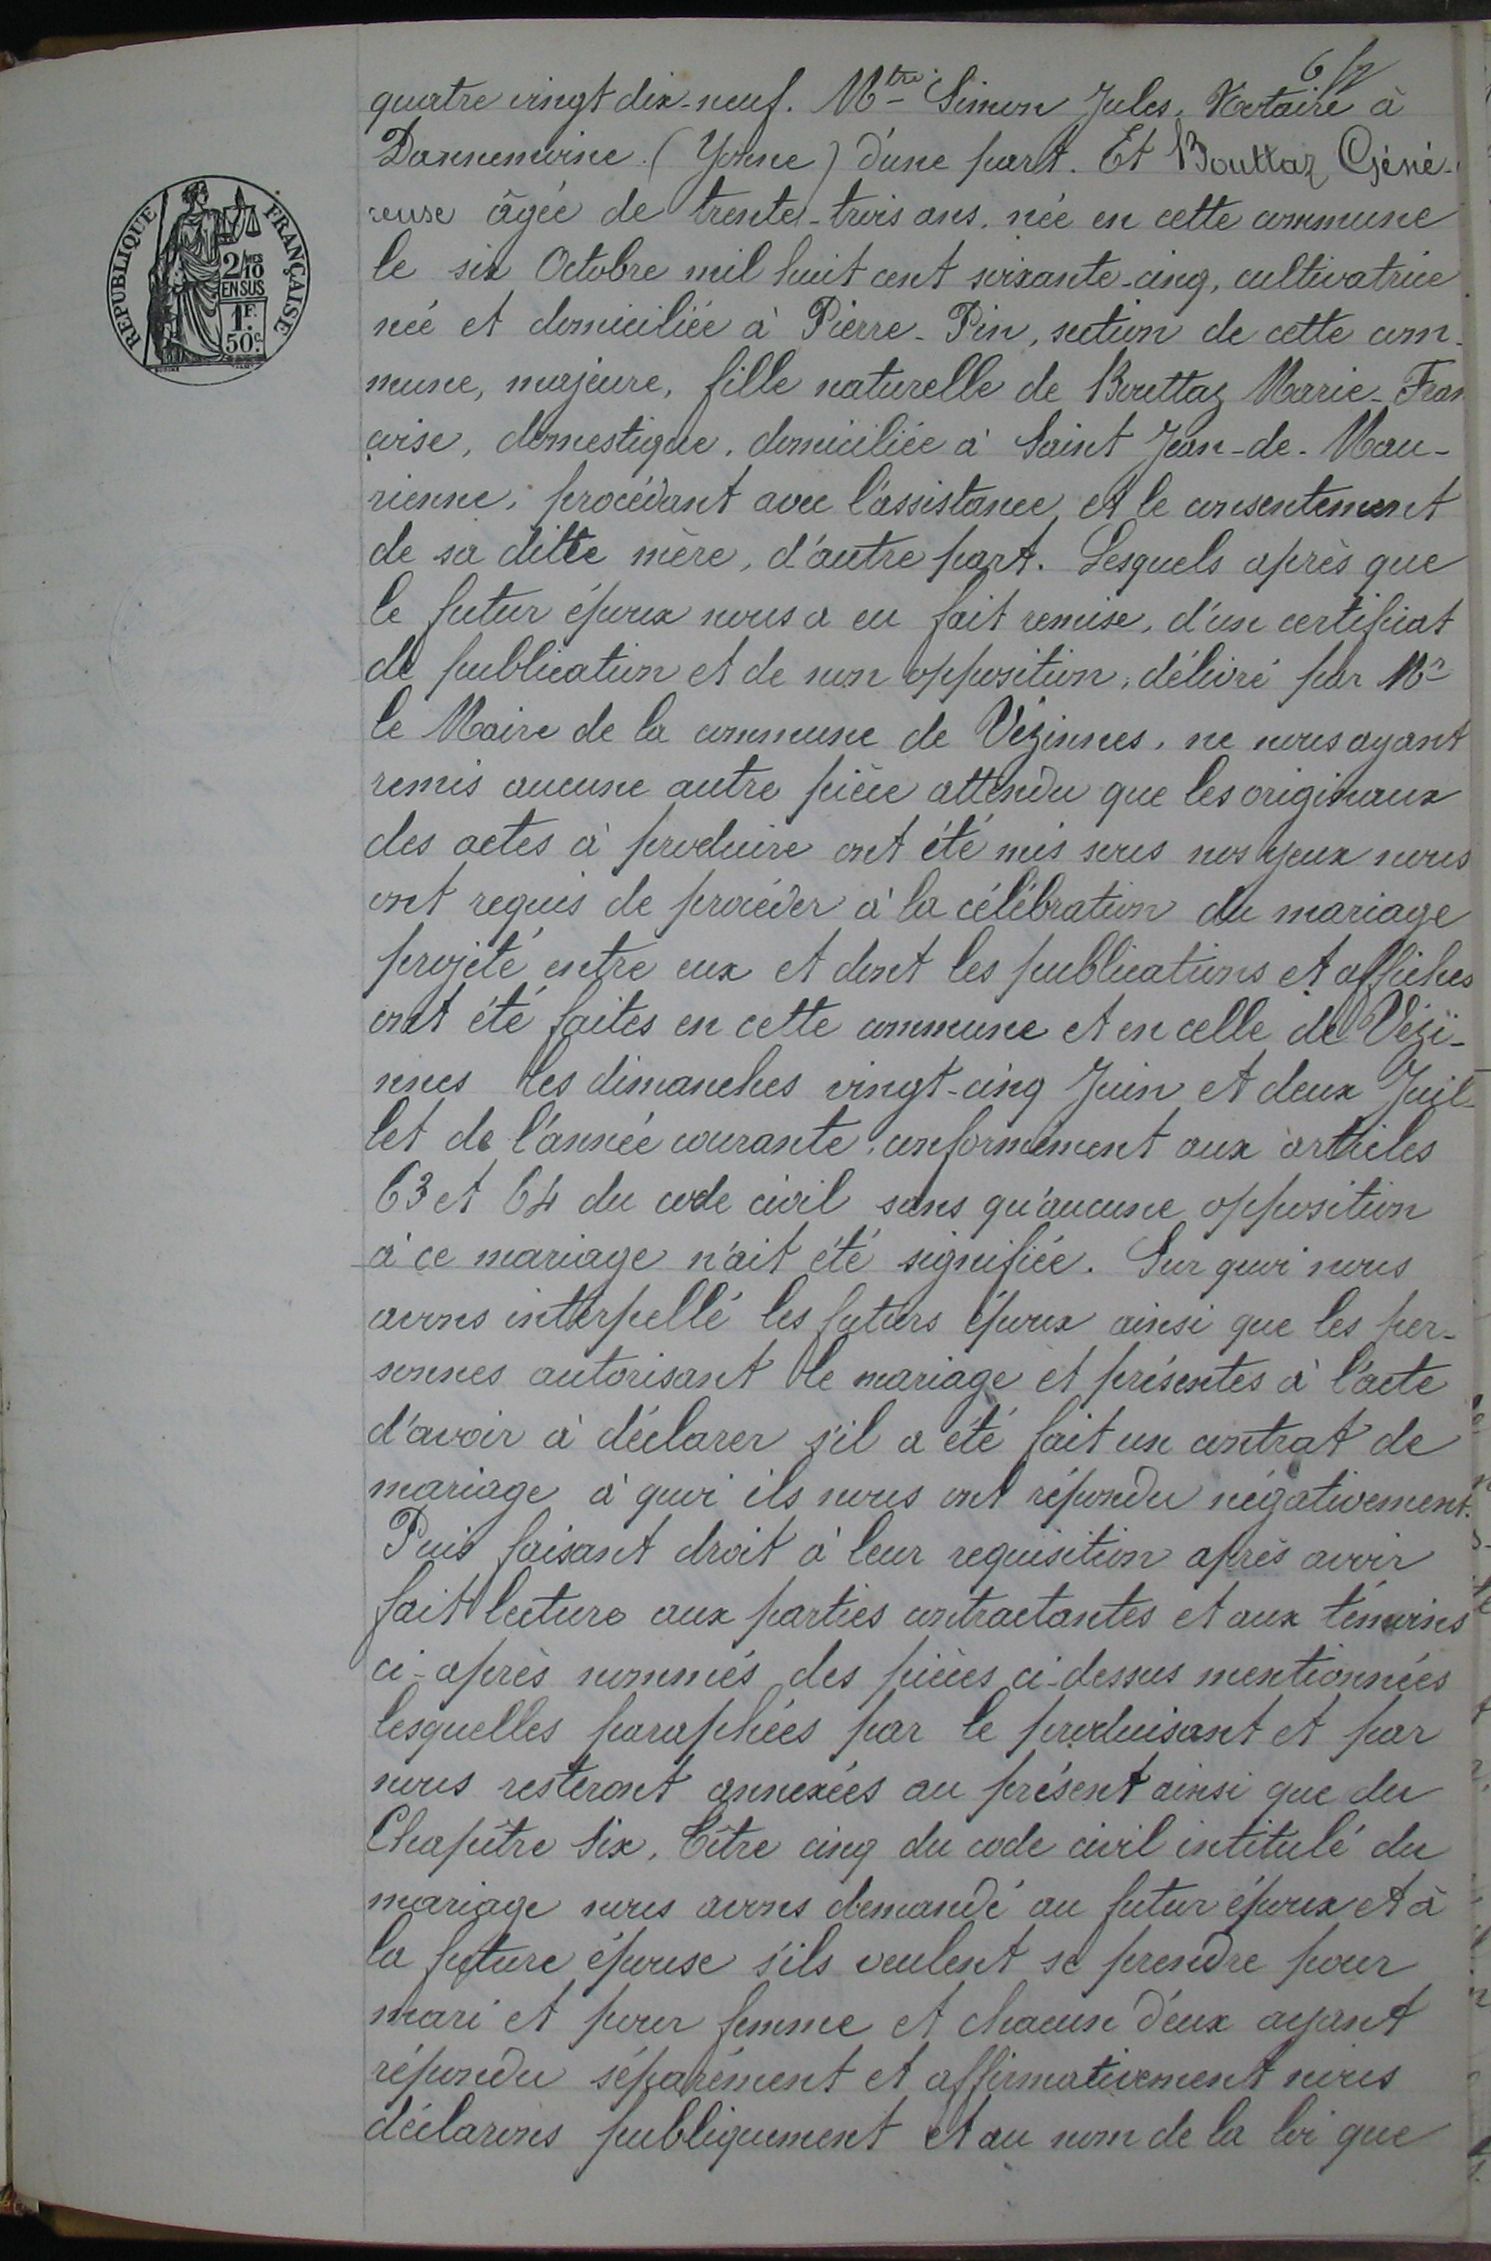 quatre vingt dix-neuf. Mtre Simon Jules, Notaire à
Dannemoine (Yonne) d'une part. Et Bouttaz Géné-
reuse âgée de trente-trois ans, née en cette commune
le six Octobre mil huit cent soixante-cinq, cultivatrice
née et domiciliée à Pierre-Pin, section de cette com-
mune, majeure, fille naturelle de Bouttaz Marie-Fran
çoise, domestique, domiciliée à Saint Jean-de-Mau-
rienne, procédant avec l'assistance et le consentement
de sa ditte mère, d'autre part. Lesquels après que
le futur époux nous a eu fait remise, d'un certificat
de publication et de non opposition, délivré par Mr
le Maire de la commune de Vézinnes, ne nous ayant
remis aucune autre pièce attendu que les originaux
des actes à produire ont été mis sous nos yeux nous
ont requis de procéder à la célébration du mariage
projeté entre eux et dont les publications et affiches
ont été faites en cette commune et en celle de Vézi-
nnes les dimanches vingt-cinq Juin et deux Juil-
let de l'année courante, conformément aux articles
63 et 64 du code civil sans qu'aucune opposition
à ce mariage n'ait été signifiée. Sur quoi nous
avons interpellé les futurs époux ainsi que les per-
sonnes autorisant le mariage et présentes à l'acte
d'avoir à déclarer s'il a été fait un contrat de
mariage à quoi ils nous ont répondu négativement.
Puis faisant droit à leur requisition après avoir
fait lecture aux parties contractantes et aux témoins
ci-après nommés des pièces ci-dessus mentionnées
lesquelles paraphées par le produisant et par
nous resteront annexées au présent ainsi que du
Chapître six, titre cinq du code civil intitulé du
mariage nous avons demandé au futur époux et à
la future épouse s'ils veulent se prendre pour
mari et pour femme et chacun d'eux ayant
répondu séparément et affirmativement nous
déclarons publiquement et au nom de la loi que
REPUBLIQUE FRANÇAISE
2/10 MES
EN SUS
1F.
50c.